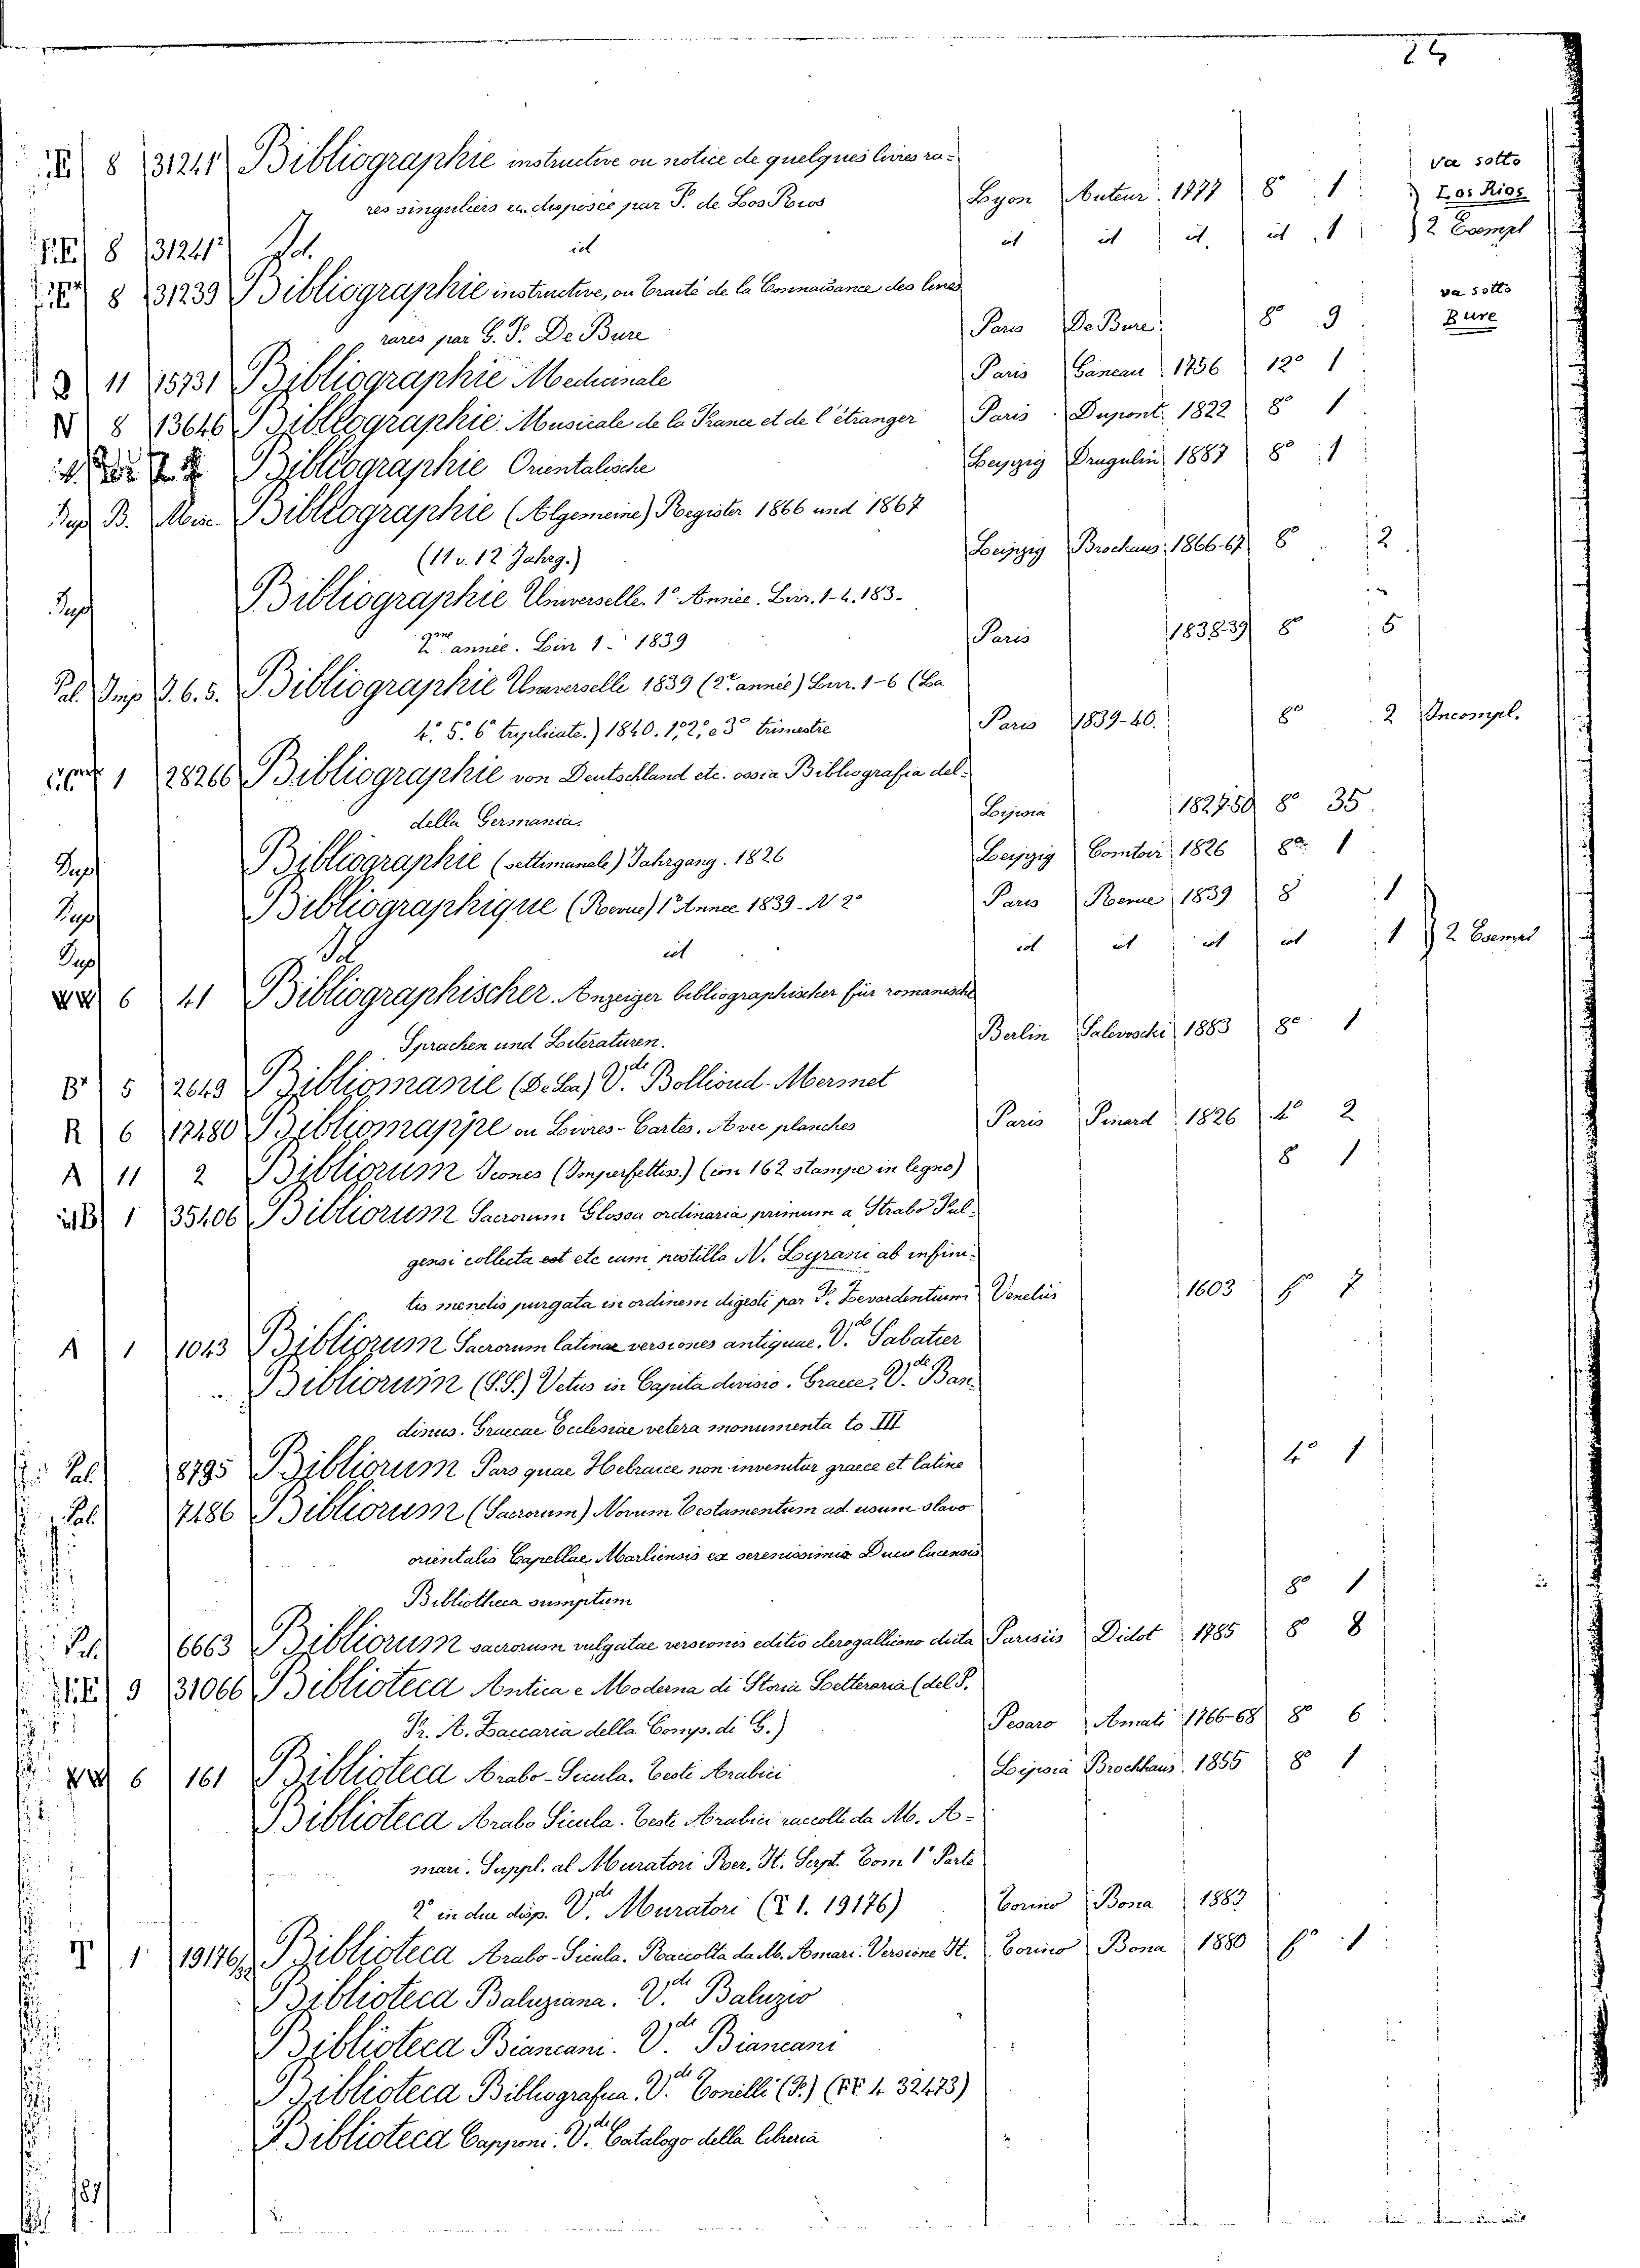 24
8 31241 Bibliographie instructive ou notice de quelques livres ra-
res singuliers en disposée par F. de Los Rios Lyon Auteur 1777 8° 1 va sotto Los Rios
8 31241² Id. id id id id. id 1 2 Esempl
8 31239 Bibliographie instructive, ou Traité de la Connaissance des livres
rares par G. F. De Bure Paris De Bure 8° 9 va sotto Bure
11 15731 Bibliographie Medicinale Paris Ganeau 1756 12° 1
N 8 13646 Bibliographie Musicale de la France et de l'étranger Paris Dupont 1822 8° 1
Bibliographie Orientalische Leipzig Drugulin 1887 8° 1
Dup B. Misc. Bibliographie (Algemeine) Register 1866 und 1867
(11 v. 12 Jahrg.) Leipzig Brochaus 1866-67 8° 2
Dup Bibliographie Universelle. 1° Année. Livr. 1-4. 183-
2me année. Livr 1- 1839 Paris 1838-39 8° 5
Pal. Imp I. 6. 5. Bibliographie Universelle 1839 (2e année) Livr. 1-6 (La
4°. 5°. 6° tryplicate.) 1840. 1°, 2°, e 3° trimestre Paris 1839-40. 8° 2 Incompl.
1 28266 Bibliographie von Deutschland etc. ossia Bibliografia del-
della Germania. Lipsia 1827-50 8° 35
Dup Bibliographie (settimanale) Jahrgang. 1826 Leipzig Comtoir 1826 8° 1
Dup Bibliographique (Revue) 1° Année 1839 - N 2° Paris Revue 1839 8° 1
Dup Id id id id id id 1 2 Esempl
6 41 Bibliographischer. Anzeiger bibliographischer für romanische
Sprachen und Literaturen. Berlin 1883 8° 1
5 2649 Bibliomanie (De La) Vde Bolliond-Mermet
R 6 17480 Bibliomappe ou Livres-Cartes. Avec planches Paris Pinard 1826 4° 2
A 11 2 Bibliorum Icones (Imperfettiss.) (con 162 stampe in legno) 8 1
B 1 35406 Bibliorum Sacrorum Glossa ordinaria primum a Strabo Ful-
gensi collecta est etc cum postilla N. Lyrani ab infini-
tis mendis purgata in ordinem digesti par F. Fevardentium Venetiis 1603 f° 7
A 1 1043 Bibliorum Sacrorum latinae versiones antiquae. Vde Sabatier
Bibliorum (S.S.) Vetus in Capita divisio. Graece. Vde Ban-
dinus. Graecae Ecclesiae vetera monumenta to III
Pal. 8795 Bibliorum Pars quae Hebraice non invenitur graece et latine 4° 1
Pal. 7486 Bibliorum (Sacrorum) Novum Testamentum ad usum slavo
orientalis Capellae Marliensis ex serenissimis Ducis lucensis
Bibliotheca sumptum 8° 1
Pal. 6663 Bibliorum sacrorum vulgatae versionis editio clerogalliano dicta Parisiis Didot 1785 8° 8
9 31066 Biblioteca Antica e Moderna di Storia Letteraria (del P.
Fr. A. Zaccaria della Comp. di G.) Pesaro Amati 1766-68 8° 6
6 161 Biblioteca Arabo-Sicula. Testi Arabici Lipsia Brockhaus 1855 8° 1
Biblioteca Arabo Sicula. Testi Arabici raccolti da M. A-
mari. Suppl. al Muratori Rer. It. Script. Tom 1° Parte
2° in due disp. Vde Muratori (T 1. 19176) Torino Bona 1889
1 19176 Biblioteca Arabo-Sicula. Raccolta da M. Amari. Versione It. Torino Bona 1880 f° 1
Biblioteca Baluziana. Vde Baluzio
Biblioteca Biancani. Vde Biancani
Biblioteca Bibliografica. Vde Tonelli (F.) (FF. 4. 32473)
Biblioteca Capponi. Vde Catalogo della libreria